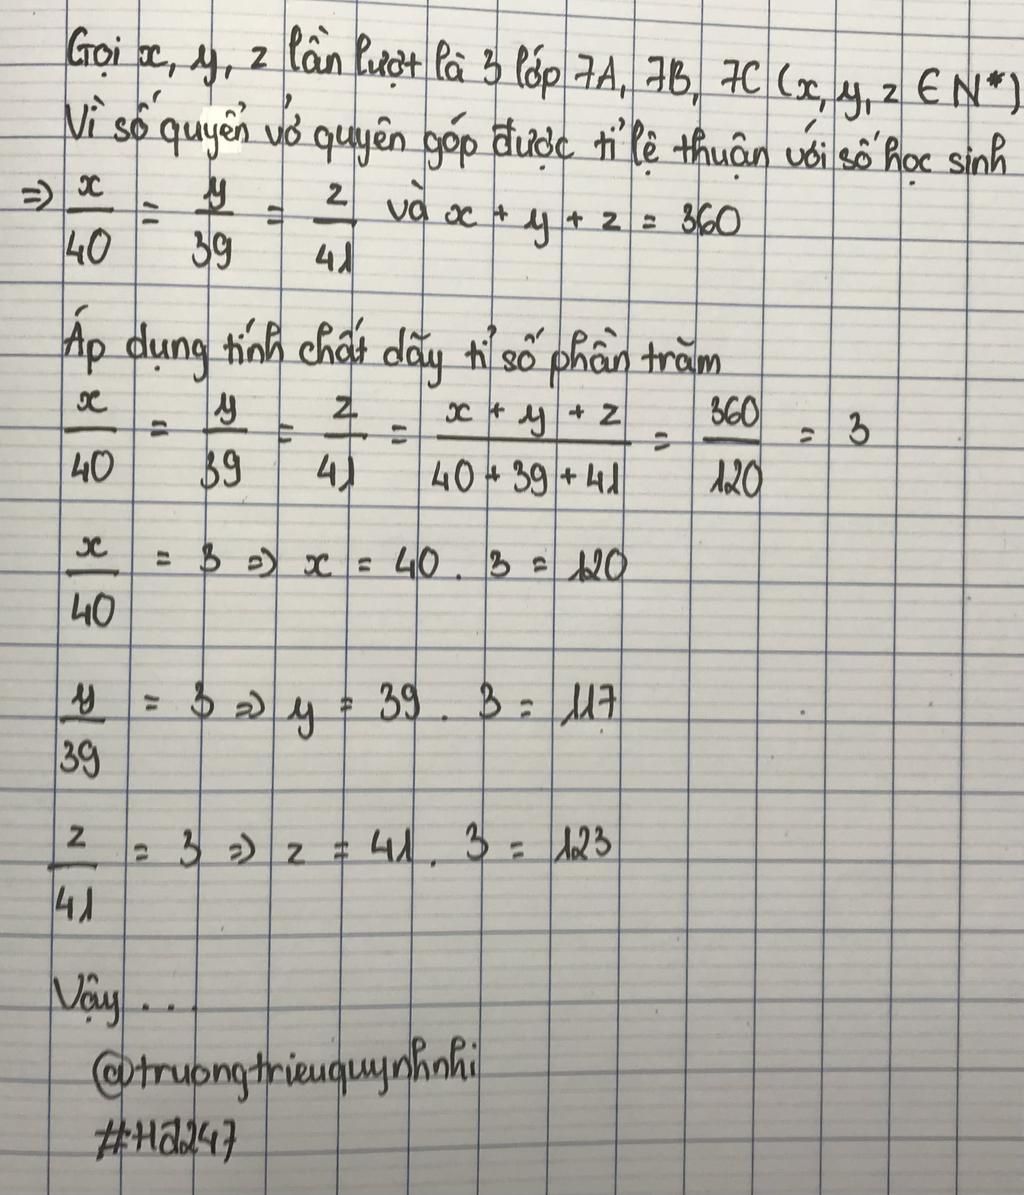 Gọi x, y, z lần lượt là 3 lớp 7A, 7B, 7C (x, y, z ∈ N*)
Vì số quyển vở quyên góp được tỉ lệ thuận với số học sinh
=> x/40 = y/39 = z/41 và x + y + z = 360
Áp dụng tính chất dãy tỉ số phần trăm
x/40 = y/39 = z/41 = (x + y + z)/(40 + 39 + 41) = 360/120 = 3
x/40 = 3 => x = 40 . 3 = 120
y/39 = 3 => y = 39 . 3 = 117
z/41 = 3 => z = 41 . 3 = 123
Vậy ...
@truongtrieuquynhnhi
#Hđ247